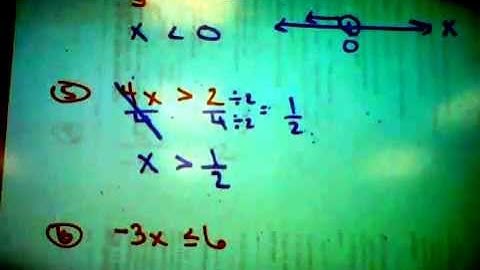 x < 0
0
x
⑤ 4x/4 > 2/4 ÷2/÷2 = 1/2
x > 1/2
⑥ -3x ≤ 6